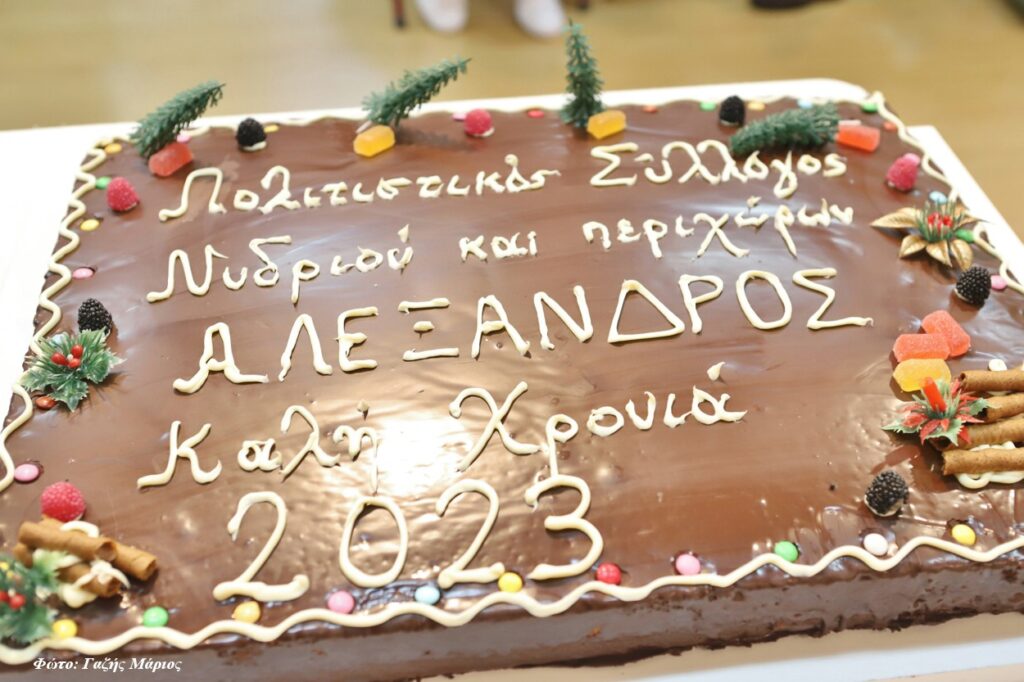 Πολιτιστικός Σύλλογος
Νυδριού και περιχώρων
ΑΛΕΞΑΝΔΡΟΣ
Καλή Χρονιά
2023
Φώτο: Γαζής Μάριος